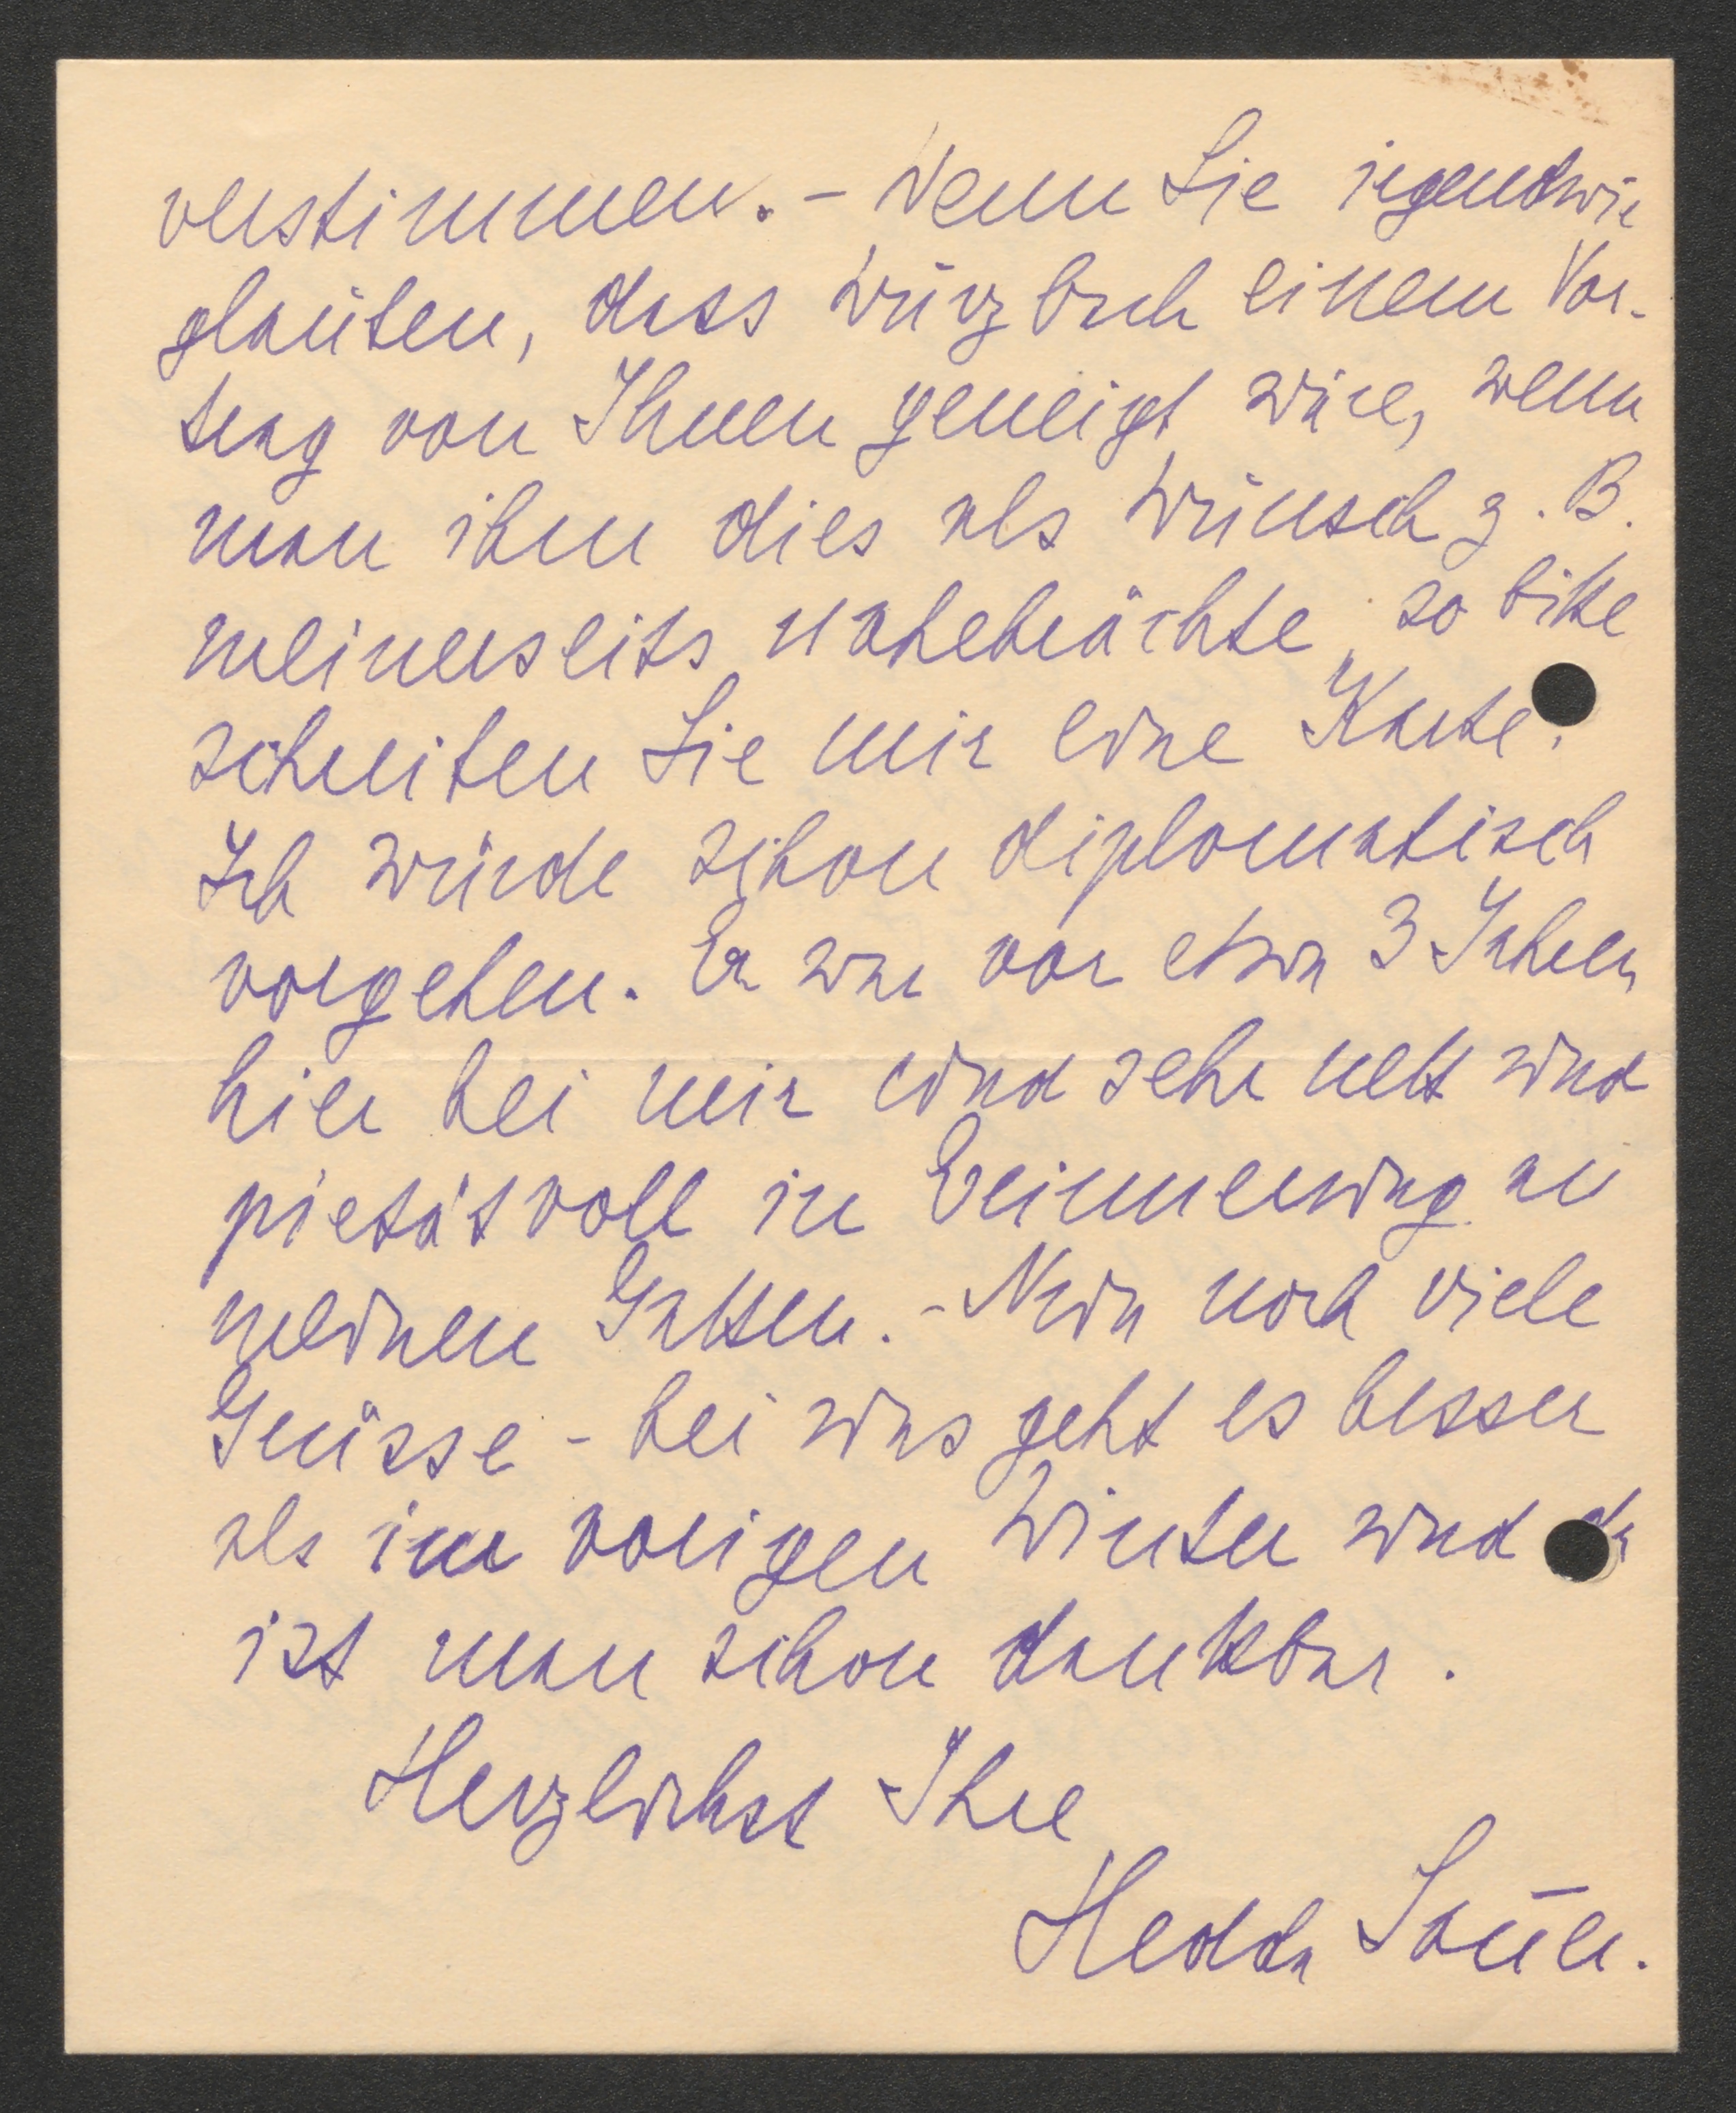 verstimmen. - Wenn Sie irgendwie
glauben, dass Würzbach einem Vor-
trag von Ihnen geneigt wäre, wenn
man ihm dies als Wunsch z. B.
meinerseits nahebrächte, so bitte
schreiben Sie mir eine Karte.
Ich würde schon diplomatisch
vorgehen. Er war vor etwa 3 Jahren
hier bei mir und sehr nett und
pietätvoll in Erinnerung an
meinen Gatten. - Nun noch viele
Grüsse - bei uns geht es besser
als im vorigen Winter und da
ist man schon dankbar.
Herzlichst Ihre
Hedda Sauer.